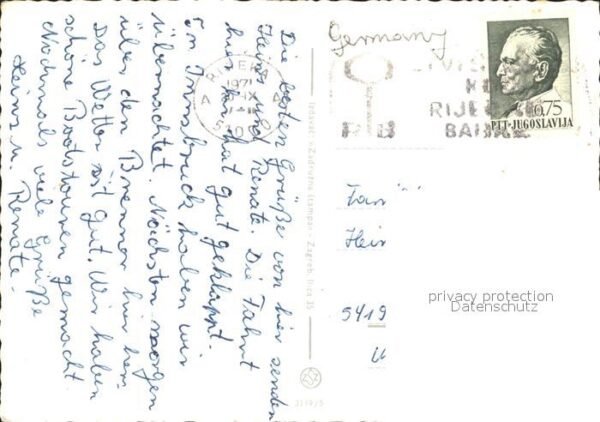 Die besten Grüße von hier senden
Heinz und Renate. Die Fahrt
hier her hat gut geklappt.
In Innsbruck haben wir
übernachtet. Nächsten morgen
über den Brenner hier her.
Das Wetter ist gut. Wir haben
schöne Bootstouren gemacht.
Nochmals viele Grüße
Heinz u. Renate.
Germany
RIJEKA
1971
RIJE
0,75
PTT-JUGOSLAVIJA
Fam
Hein
5419
privacy protection
Datenschutz
Zagreb